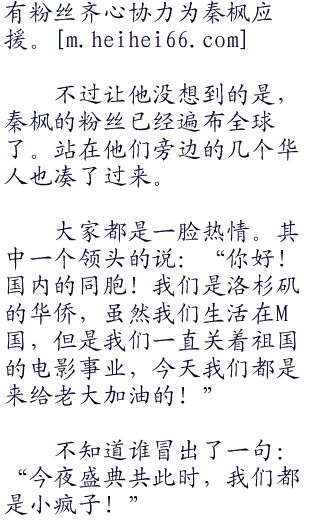 有粉丝齐心协力为秦枫应
援。[m.heihei66.com]
不过让他没想到的是，
秦枫的粉丝已经遍布全球
了。站在他们旁边的几个华
人也凑了过来。
大家都是一脸热情。其
中一个领头的说：“你好！
国内的同胞！我们是洛杉矶
的华侨，虽然我们生活在M
国，但是我们一直关着祖国
的电影事业，今天我们都是
来给老大加油的！”
不知道谁冒出了一句：
“今夜盛典共此时，我们都
是小疯子！”